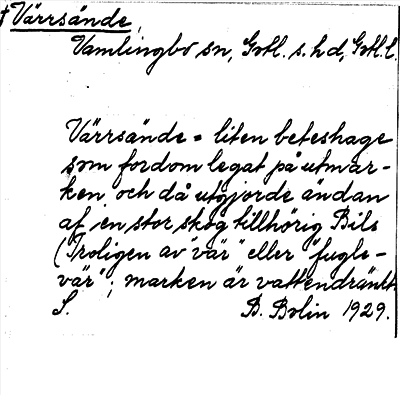 † Värrsände,
Vamlingbo sn, Gotl. s. hd, Gotl. l.
Värrsände = liten beteshage
som fordom legat på utmar-
ken och då utgjorde ändan
af en stor skog tillhörig Bils
(Troligen av "vär" eller "fugle-
vär"; marken är vattendränkt.
S. B. Bolin 1929.